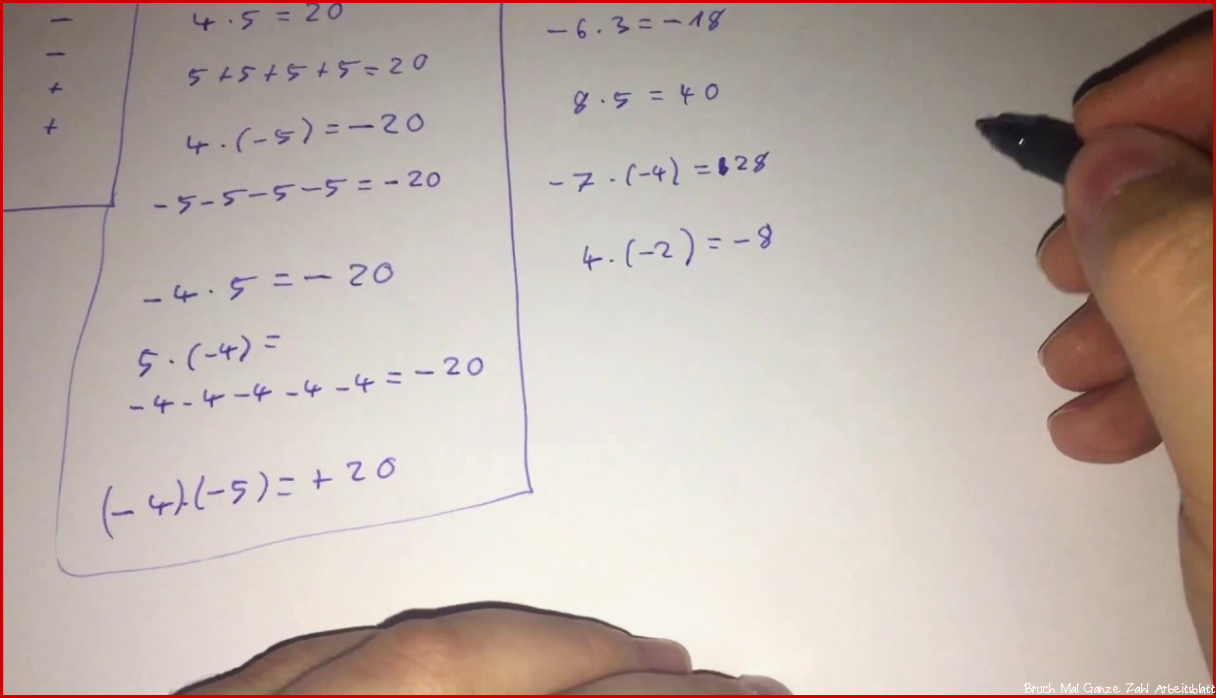 −
−
+
+
4 · 5 = 20
5 + 5 + 5 + 5 = 20
4 · (−5) = −20
−5−5−5−5 = −20
−4 · 5 = − 20
5 · (−4) =
−4−4−4−4−4 = −20
(−4)·(−5) = + 20
−6 · 3 = −18
8 · 5 = 40
−7 · (−4) = 28
4 · (−2) = −8
Bruch Mal Ganze Zahl Arbeitsblatt